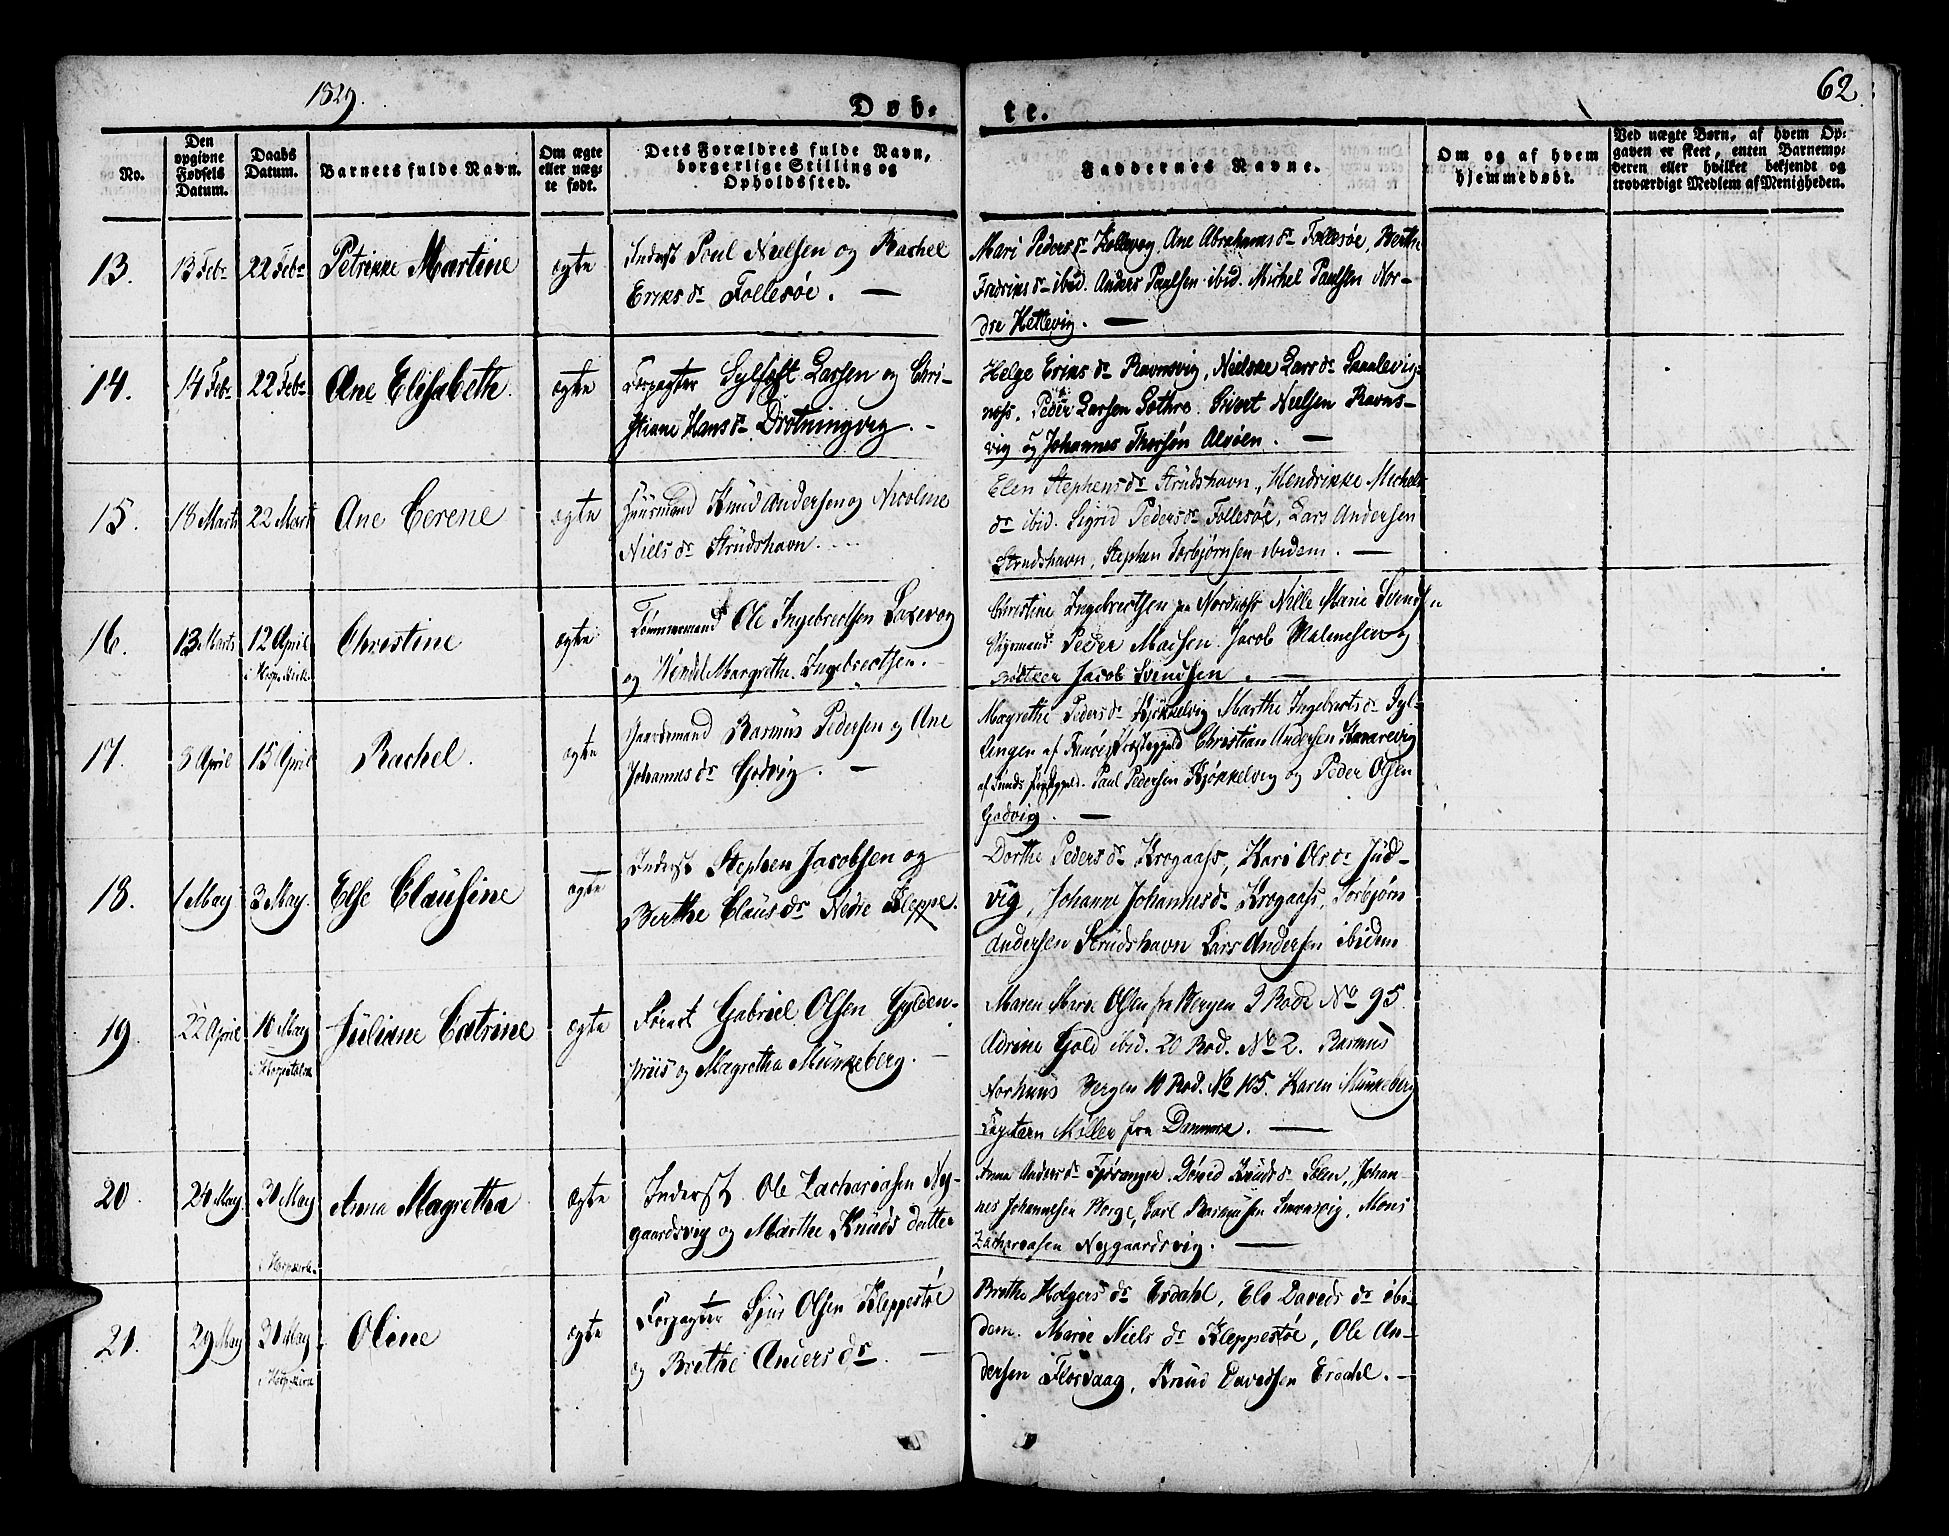 1829.
Døb-
te.
62
No.
Den opgivne Fødsels Datum.
Daabs Datum.
Barnets fulde Navn.
Om ægte eller uæg-te født.
Dets Forældres fulde Navn, borgerlige Stilling og Opholdssted.
Faddernes Navne.
Om og af hvem hjemmedøbt.
Ved uægte Børn, af hvem Op-gaven er skeet, enten Barnemo-deren eller hvilket bekjendt og troværdigt Medlem af Menigheden.
13. 13 Febr 22 Febr Petrikke Martine ægte Inderst Poul Nielsen og Rachel
Eriks dr Follesøe. —
Mari Peders dr Kollevog, Ane Abrahams dr Follesøe, Berthe
Fredriks dr ibid. Anders Paulsen ibid. Michel Paulsen Nor-
dre Hettevig. —
14. 14 Febr 22 Febr Ane Elisabeth. ægte Forpagter Sylfæst Larsen og Chri-
stiane Hans dr Drotningvig. -
Helge Eriks dr Ravnsvig, Nielske Lars dr
Peder Larsen Sivert Nielsen Ravns-
vig og Johannes Alvøen. —
15. 18 Marts 22 Marts Ane Cerene ægte Huusmand Knud Andersen og Nicoline
Niels dr Strudshavn.
Elen Stephens dr Strudshavn, Hendrikke Michels
dr ibid. Sigrid Peders dr Follesøe, Lars Andersen
Strudshavn, Stephen Torbjørnsen ibidem. —
16. 13 Marts 12 April Christine ægte Tømmermand Ole Ingebrectsen Laxevog
i Hosp. Kirk.
og Wendel Margrethe Ingebrectsen. -
Christine Ingebrectsen paa Nordnæss Nille Marie Svendsen
Peder Madsen Jacob Malmesen og
Bødtker Jacob Svendsen. —
17. 3 April 15 April Rachel. ægte Gaardmand Rasmus Pedersen og Ane
Johannes dr Godvig. —
Magrethe Peders dr Kjøkkelvig Marthe Ingeberts dr Fyl-
lingen af Præstegjeld Christian Andersen
af Sunds Præstegjeld. Paul Pedersen Kjøkkelvig og Peder Olsen
Godvig. —
18. 1 May 3 May. Else Clausine ægte Inderst Stephen Jacobsen og
Berthe Claus dr Nedre Kleppe.
Dorthe Peders dr Krogaass, Kari Ols dr Jud-
vig, Johanne Johannes dr Krogaass, Torbjørn
Andersen Strudshavn Lars Andersen ibidem
19. 22 April 10 May Juliane Catrine ægte Gabriel Olsen Gylden-
i Hospitalsk
priis og Magretha Munkeberg. —
Maren Marie Olsen fra Bergen 2 Rode No 95.
Adrine Gold ibid. 20 Rod. No 2. Rasmus
Aarhuus Bergen 10 Rod. No 105. Karen Munkeberg
Capitain Møller fra Danmark. —
20. 20 May 30 May Anna Magretha ægte Inderst Ole Zachariasen Ny-
i Hospkirk.
gaardsvig og Marthe Knuds datter
Anna Anders dr Fjøsanger. Knuds dr Solen, Johan-
nes Johannesen Carl Rasmusen Mons
Zachariasen Nygaardsvig. —
21. 29 May 30 May Oline ægte Forpagter Sjur Olsen Kleppestøe
i Hospkirk
og Brethe Anders dr. —
Brethe Holgers dr Erdahl, Eli Davids dr ibi-
dem. Marie Niels dr Kleppestøe, Ole An-
dersen Florvaag, Knud Davidsen Erdahl. -